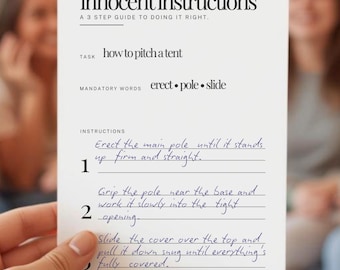 innocent instructions
A 3 STEP GUIDE TO DOING IT RIGHT.
TASK how to pitch a tent
MANDATORY WORDS erect • pole • slide
INSTRUCTIONS
1 Erect the main pole until it stands
up firm and straight.
2 Grip the pole near the base and
work it slowly into the tight
opening.
3 Slide the cover over the top and
pull it down snug until everything's
fully covered.